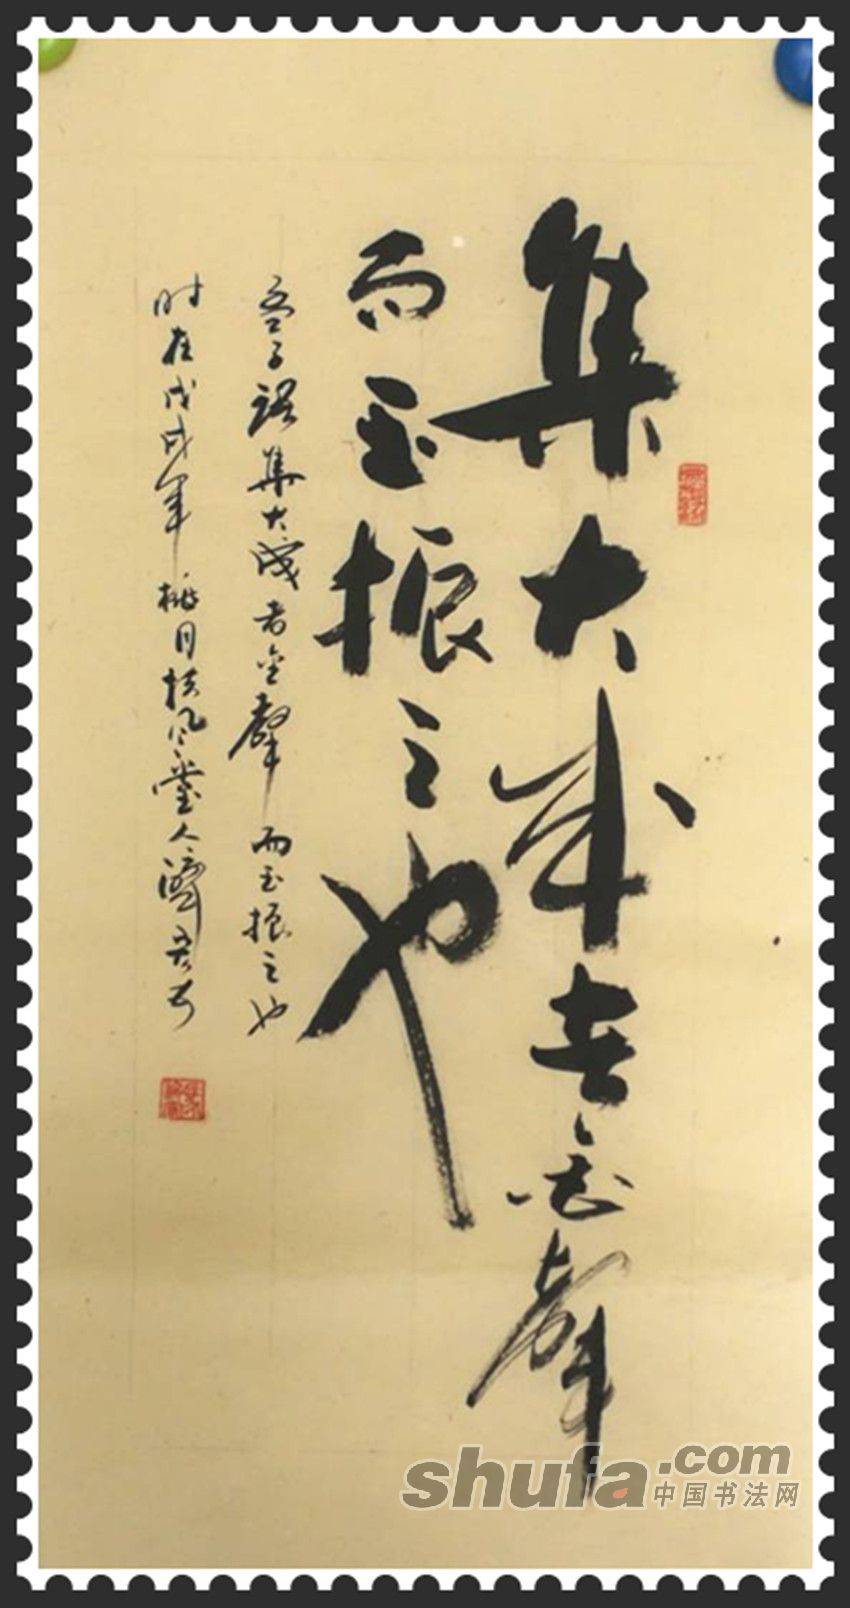 集大成者金聲
而玉振之也
孟子語集大成者金聲而玉振之也
时在戊戌年桃月扶风堂人濟
shufa.com
中国书法网